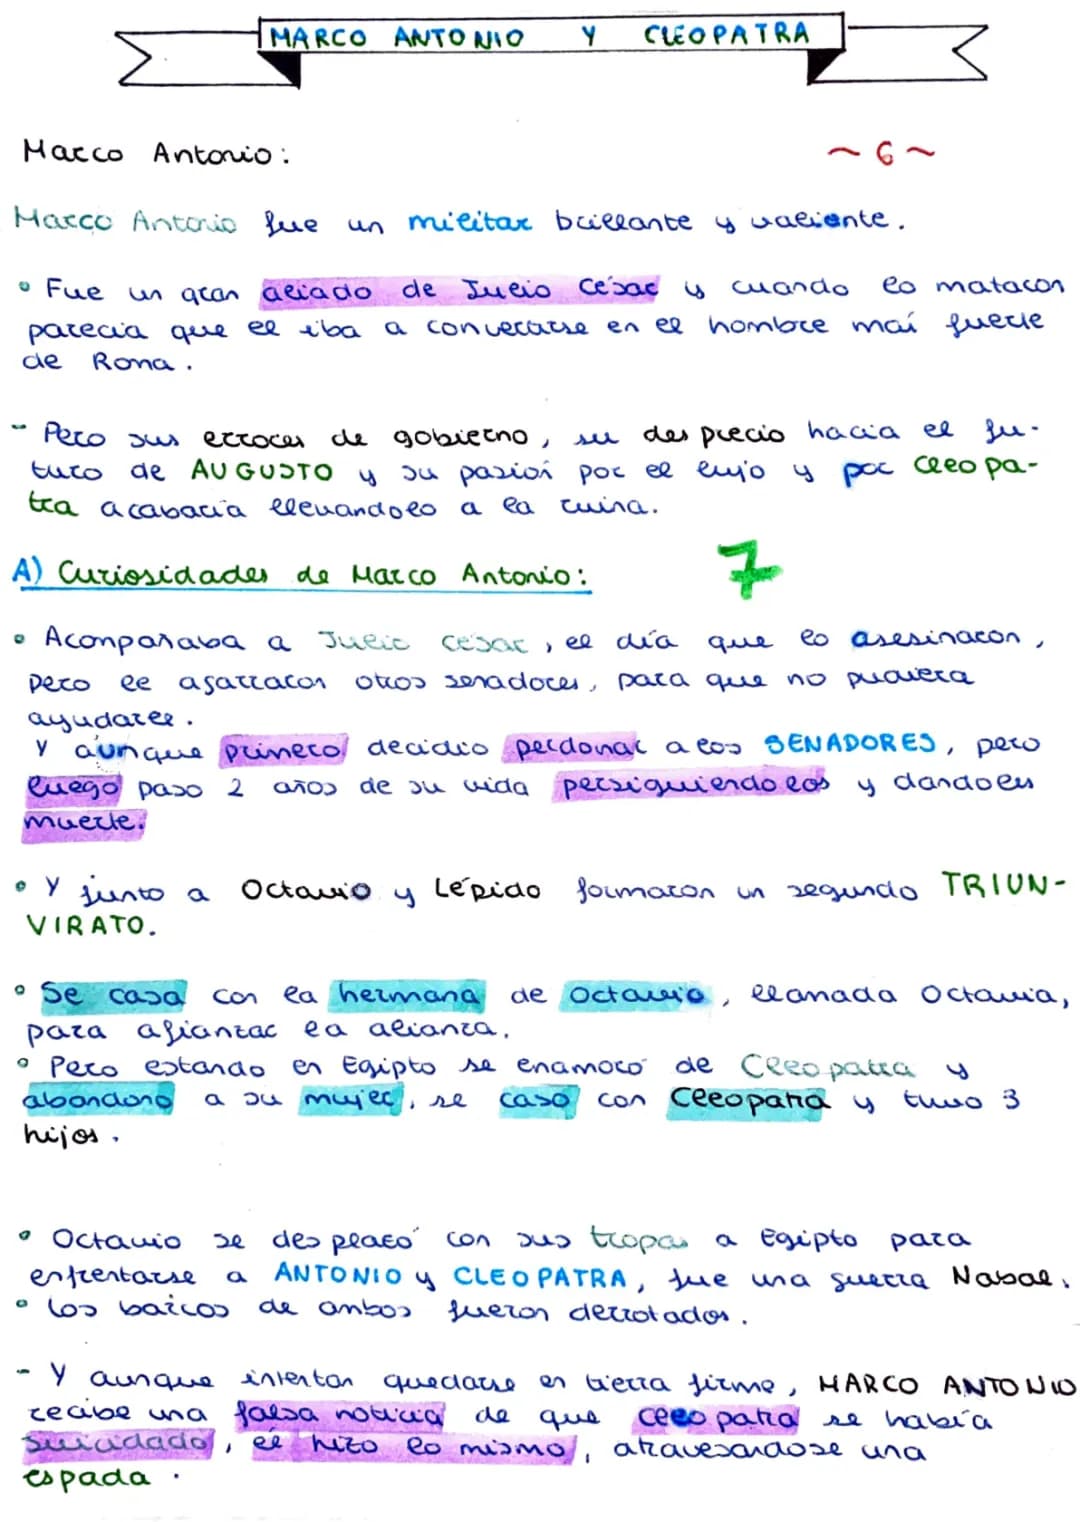 MARCO ANTONIO Y CLEOPATRA
Marco Antonio:
~ 6 ~
Marco Antonio fue un militar brillante y valiente.
• Fue un gran aliado de Julio César y cuando lo mataron
parecia que el iba a convertirse en el hombre maí fuerte
de Roma.
- Pero sus errores de gobierno, su desprecio hacia el fu-
turo de AUGUSTO y su pasioń por el lujo y por Cleopa-
tra acabaría llevandolo a la ruina.
A) Curiosidades de Marco Antonio:
7
• Acompañaba a Julio Cesar, el día que lo asesinaron,
pero le agarraron otros senadores, para que no pudiera
ayudarle.
Y aunque primero decidio perdonar a los SENADORES, pero
luego paso 2 años de su vida persiguiendolos y dandoles
muerte.
• Y junto a Octavio y Lépido formaron un segundo TRIUN-
VIRATO.
• Se casa con la hermana de Octavio, llamada Octavia,
para afianzar la alianza.
• Pero estando en Egipto se enamoró de Cleopatra y
abandono a su mujer, se caso con Cleopatra y tuvo 3
hijos.
• Octavio se desplazó con sus tropas a Egipto para
enfrentarse a ANTONIO y CLEOPATRA, fue una guerra Nabal.
• Los barcos de ambos fueron derrotados.
- Y aunque intentan quedarse en tierra firme, MARCO ANTONIO
recibe una falsa noticia de que Cleopatra se había
suicidado, él hizo lo mismo, atravesandose una
espada.